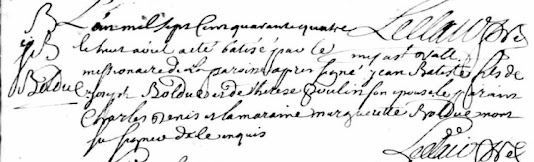 B L'an mil sept cent quarante quatre Leclair Ptre
le huit avril a eté batisé par le miss
missionaire de la paroisse apres signé jean Batiste fils de
Bolduc Joseph Bolduc et de therese Poulin son epouse le parain
Charles et la maraine marguerite Bolduc n'ont
su signer de ce enquis
Leclair Ptre